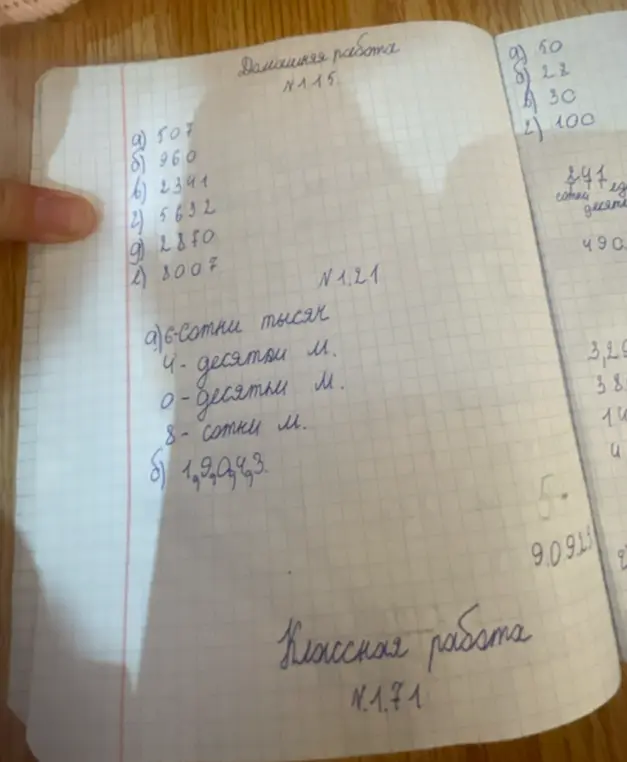 Домашняя работа
N 1.15.
а) 507
б) 960
в) 2341
г) 5632
д) 2870
е) 8007
N 1.21
а) 6-сотни тысяч
4 - десятки м.
0 - десятки м.
8 - сотни м.
б) 1,9,0,4,3.
5.
9.09.25
Классная работа
N.1.71
а) 50
б) 28
в) 30
г) 100
341
сотни
490
3,2
38
14
4